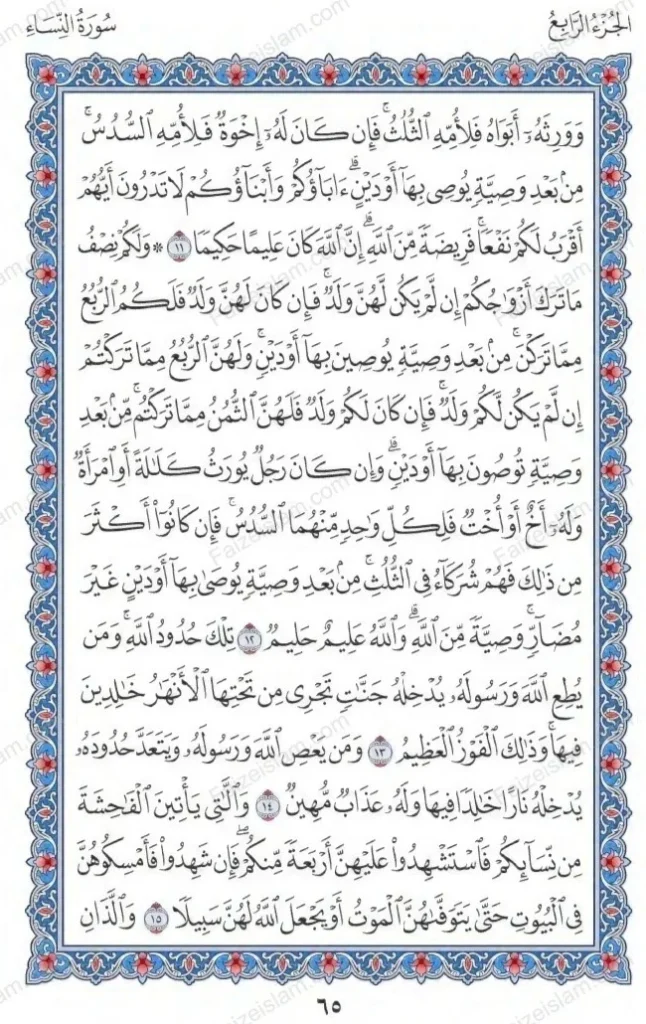 الجُزْءُ الرَّابِعُ
سُورَةُ النِّسَاءِ
وَوَرِثَهُۥٓ أَبَوَاهُ فَلِأُمِّهِ ٱلثُّلُثُۚ فَإِن كَانَ لَهُۥٓ إِخْوَةٌ فَلِأُمِّهِ ٱلسُّدُسُۚ
مِنۢ بَعْدِ وَصِيَّةٍ يُوصِى بِهَآ أَوْ دَيْنٍۗ ءَابَآؤُكُمْ وَأَبْنَآؤُكُمْ لَا تَدْرُونَ أَيُّهُمْ
أَقْرَبُ لَكُمْ نَفْعًاۚ فَرِيضَةً مِّنَ ٱللَّهِۗ إِنَّ ٱللَّهَ كَانَ عَلِيمًا حَكِيمًا ١١ * وَلَكُمْ نِصْفُ
مَا تَرَكَ أَزْوَٰجُكُمْ إِن لَّمْ يَكُن لَّهُنَّ وَلَدٌۚ فَإِن كَانَ لَهُنَّ وَلَدٌ فَلَكُمُ ٱلرُّبُعُ
مِمَّا تَرَكْنَۚ مِنۢ بَعْدِ وَصِيَّةٍ يُوصِينَ بِهَآ أَوْ دَيْنٍۚ وَلَهُنَّ ٱلرُّبُعُ مِمَّا تَرَكْتُمْ
إِن لَّمْ يَكُن لَّكُمْ وَلَدٌۚ فَإِن كَانَ لَكُمْ وَلَدٌ فَلَهُنَّ ٱلثُّمُنُ مِمَّا تَرَكْتُمۚ مِّنۢ بَعْدِ
وَصِيَّةٍ تُوصُونَ بِهَآ أَوْ دَيْنٍۗ وَإِن كَانَ رَجُلٌ يُورَثُ كَلَٰلَةً أَوِ ٱمْرَأَةٌ
وَلَهُۥٓ أَخٌ أَوْ أُخْتٌ فَلِكُلِّ وَٰحِدٍ مِّنْهُمَا ٱلسُّدُسُۚ فَإِن كَانُوٓا۟ أَكْثَرَ
مِن ذَٰلِكَ فَهُمْ شُرَكَآءُ فِى ٱلثُّلُثِۚ مِنۢ بَعْدِ وَصِيَّةٍ يُوصَىٰ بِهَآ أَوْ دَيْنٍ غَيْرَ
مُضَآرٍّۚ وَصِيَّةً مِّنَ ٱللَّهِۗ وَٱللَّهُ عَلِيمٌ حَلِيمٌ ١٢ تِلْكَ حُدُودُ ٱللَّهِۚ وَمَن
يُطِعِ ٱللَّهَ وَرَسُولَهُۥ يُدْخِلْهُ جَنَّٰتٍ تَجْرِى مِن تَحْتِهَا ٱلْأَنْهَٰرُ خَٰلِدِينَ
فِيهَاۚ وَذَٰلِكَ ٱلْفَوْزُ ٱلْعَظِيمُ ١٣ وَمَن يَعْصِ ٱللَّهَ وَرَسُولَهُۥ وَيَتَعَدَّ حُدُودَهُۥ
يُدْخِلْهُ نَارًا خَٰلِدًا فِيهَا وَلَهُۥ عَذَابٌ مُّهِينٌ ١٤ وَٱلَّٰتِى يَأْتِينَ ٱلْفَٰحِشَةَ
مِن نِّسَآئِكُمْ فَٱسْتَشْهِدُوا۟ عَلَيْهِنَّ أَرْبَعَةً مِّنكُمْۖ فَإِن شَهِدُوا۟ فَأَمْسِكُوهُنَّ
فِى ٱلْبُيُوتِ حَتَّىٰ يَتَوَفَّىٰهُنَّ ٱلْمَوْتُ أَوْ يَجْعَلَ ٱللَّهُ لَهُنَّ سَبِيلًا ١٥ وَٱلَّذَانِ
٦٥
Faizeislam.com